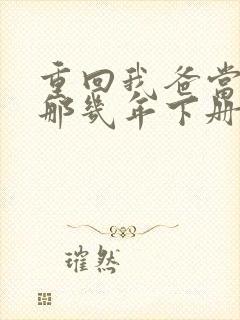 重回我爸当
那几年下册
璀然